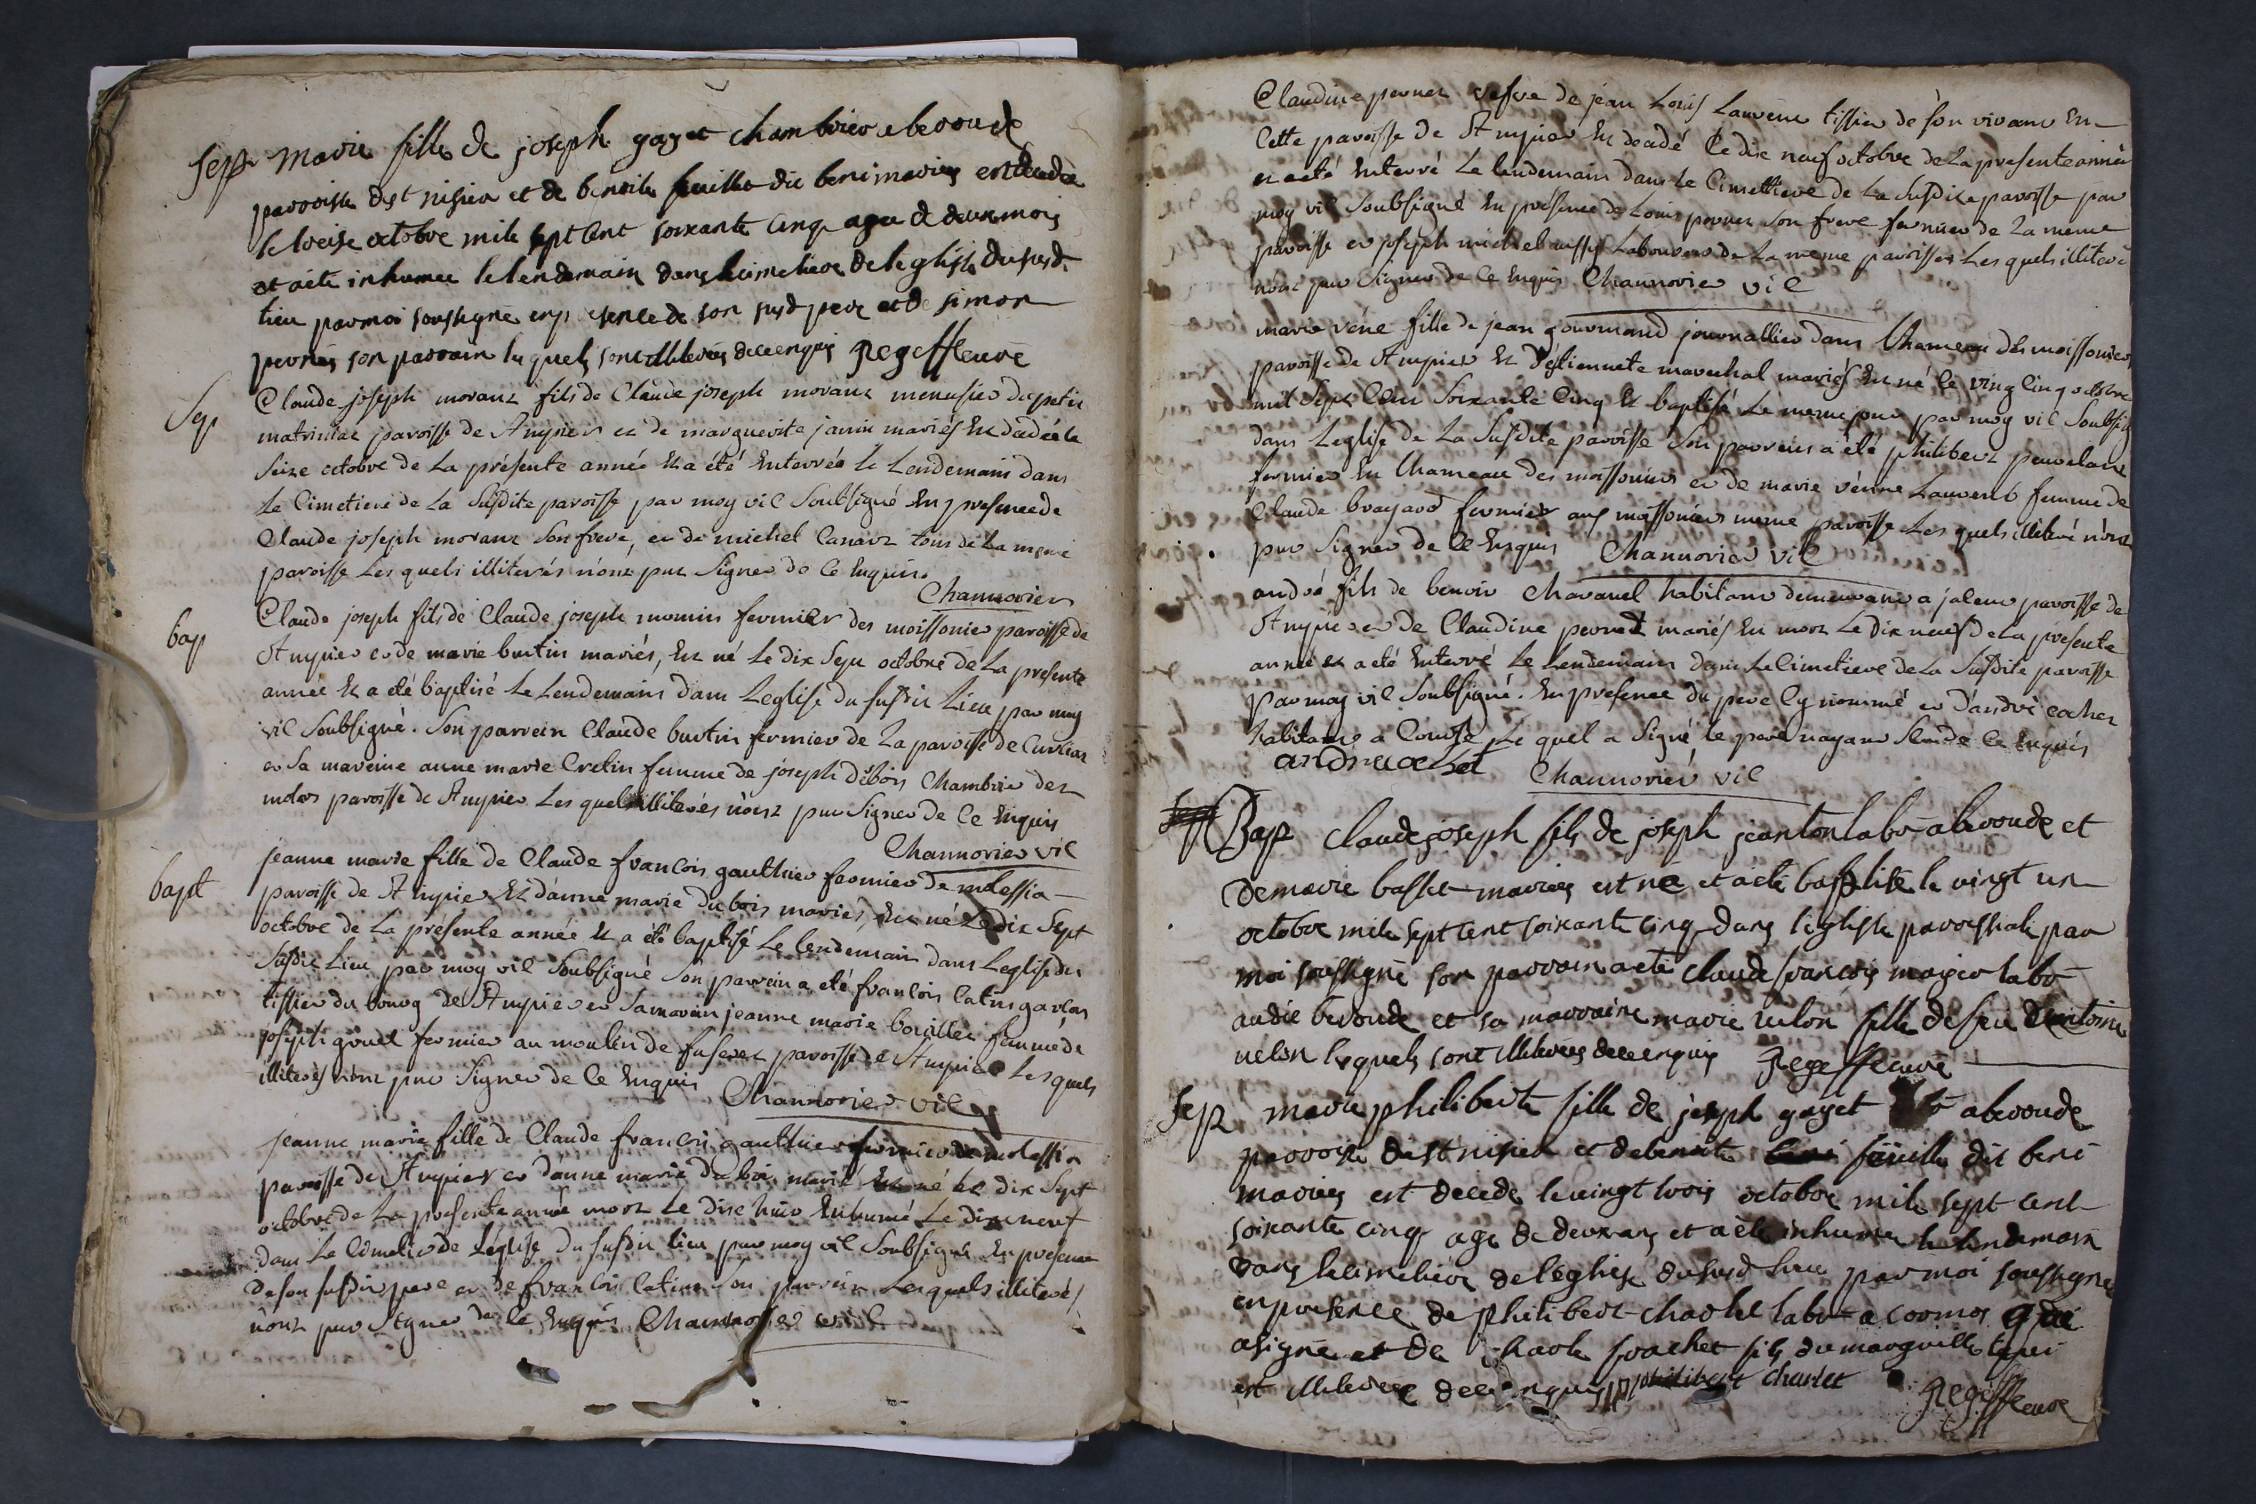 Sep marie fille de joseph gayet chambrier a beroude
paroisse de st nisier et de benoite feuillet dit beni mariés est decedée
le treize octobre mile sept cent soixante cinq agée de deux mois
et aeté inhumee le lendemain dans le cimetiere de leglise du susd
lieu par moi soussigné en presence de son susd pere et de simon
perner son parrain lequels sont illiterés de ce enquis Regeffleuve
Sep Claude joseph morant fils de Claude joseph morant menusier du petit
paroisse de St nizier et de marguerite janin mariés est decedé le
seize octobre de la présente année et a été enterrée le Lendemain dans
Le Cimetiere de La susdite paroisse par moy vic soubsigné en presence de
Claude joseph morant son frere, et de michel Canard tous de La meme
paroisse Lesquels illiterés n'ont pue signer de Ce enquis.
Chanmorier
bap Claude joseph fils de Claude joseph monnin fermier des moissonier paroisse de
St nizier et de marie burtin mariés, est né Le dix sept octobre de La presente
année et a été baptisé Le Lendemain dans Leglise du susdit Lieu par moy
vic soubsigné. Son parrein Claude burtin fermier de La paroisse de Curciat
et sa mareine anne marie Cretin femme de joseph dubois Chambrier des
paroisse de St nizier Lesquels illiterés n'ont pue signer de Ce enquis
Chanmorier vic
bapt jeanne marie fille de Claude françois gauthier fermier de molessia
paroisse de St nizier et d'anne marie dubois mariés, est né Le dix sept
octobre de La présente année et a été baptisé Le lendemain dans Leglise du
susdit Lieu par moy vic soubsigné son parrein a été françois Catin garçon
tissier du bourg de St nizier et sa marein jeanne marie bouillet femme de
joseph fermier au moulin de paroisse de St nizier Lesquels
illiterés n'ont pue signer de Ce enquis Chanmorier vic
jeanne marie fille de Claude françois gauthier fermier de molessia
paroisse de St nizier et d'anne marie dubois marié est né le dix sept
octobre de La presente année mort Le dix huit enhumé Le dix neuf
dans Le Cimetier de Léglise du susdit lieu par moy vic soubsigné en présence
de son susdit pere et de françois Catin son parrein Lesquels illiterés
n'ont pue signer de Ce enquis Chanmorier vic
Claudine perner vefve de jean Louis Laurent tissier de son vivant en
Cette paroisse de St nizier est decedé Le dix neuf octobre de La presente année
et a été enterré Le lendemain dans Le Cimettiere de La susdite paroisse par
moy vic soubsigné en présence de Louis perner son frere fermier de La meme
paroisse et joseph michel aussy Laboureur de La meme paroisse Lesquels illiteré
n'ont pue signer de Ce enquis Chanmorier vic
marie réné fille de jean gourmand journallier dans l'hameau des moissonier
paroisse de St nizier et d'estiennete marechal mariés est né le ving Cinq octobre
mil sept Cent soixante Cinq et baptisé Le meme jour par moy vic soubsig
dans Leglise de La susdite paroisse son parrein a été philibert
fermier en l'hameau des moissoniers et de marie Laurent femme de
Claude brayard fermier aux moissoniers meme paroisse Lesquels illiteré n'ont
pue signer de Ce enquis Chanmorier vic
andré fils de benoit Chavanel habitant demeurant a paroisse de
St nizier et de Claudine pernet mariés est mort Le dix neuf de La presente
année et a été enterré Le Lendemain dans Le Cimetiere de La susdite paroisse
par moy vic soubsigné. En presence du pere Cy nommé et d'andré cachet
habitant a Le quel a signé, le pere nayant seu de Ce enquis
andre cachet Chanmorier vic
Bap claude joseph fils de joseph jeanton labr a beroude et
de marie basset mariés est né et aeté baptisé le vingt un
octobre mile sept cent soixante cinq dans leglise paroissiale par
moi soussigné son parrain aeté claude françois labr
audit beroude et sa marraine marie fille de feu dantoine
lequels sont illiterés de ce enquis Regeffleuve
Sep marie philiberte fille de joseph gayet a beroude
paroisse de st nisier et de benoite feuillet dit beni
mariés est decedé le vingt trois octobre mile sept cent
soixante cinq agé de deux ans et aeté inhumée le lendemain
dans le cimetiere de leglise du susd lieu par moi soussigné
en presence de philibert charlet labr a cormos qui
a signé et de frachet fils du marguillier qui
est illiteré de ce enquis philibert charlet Regeffleuve